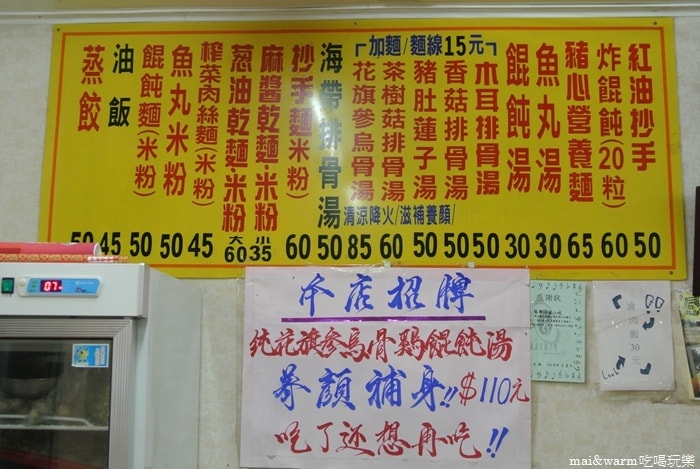 紅油抄手 50
炸餛飩(20粒) 60
豬心營養麵 65
魚丸湯 30
餛飩湯 30
┌加麵/麵線15元┐
木耳排骨湯 50
香菇排骨湯 50
豬肚蓮子湯 50
茶樹菇排骨湯 60
花旗參烏骨湯 85
清涼降火/滋補養顏/
海帶排骨湯 50
抄手麵(米粉) 60
麻醬乾麵・米粉 小35
葱油乾麵・米粉 大60
榨菜肉絲麵(米粉) 45
魚丸米粉 50
餛飩麵(米粉) 50
油飯 45
蒸餃 50
本店招牌
純花旗參烏骨鷄餛飩湯
養顏補身!!$110元
吃了还想再吃!!
感謝狀
滷肉飯30元
07
mai&warm吃喝玩樂